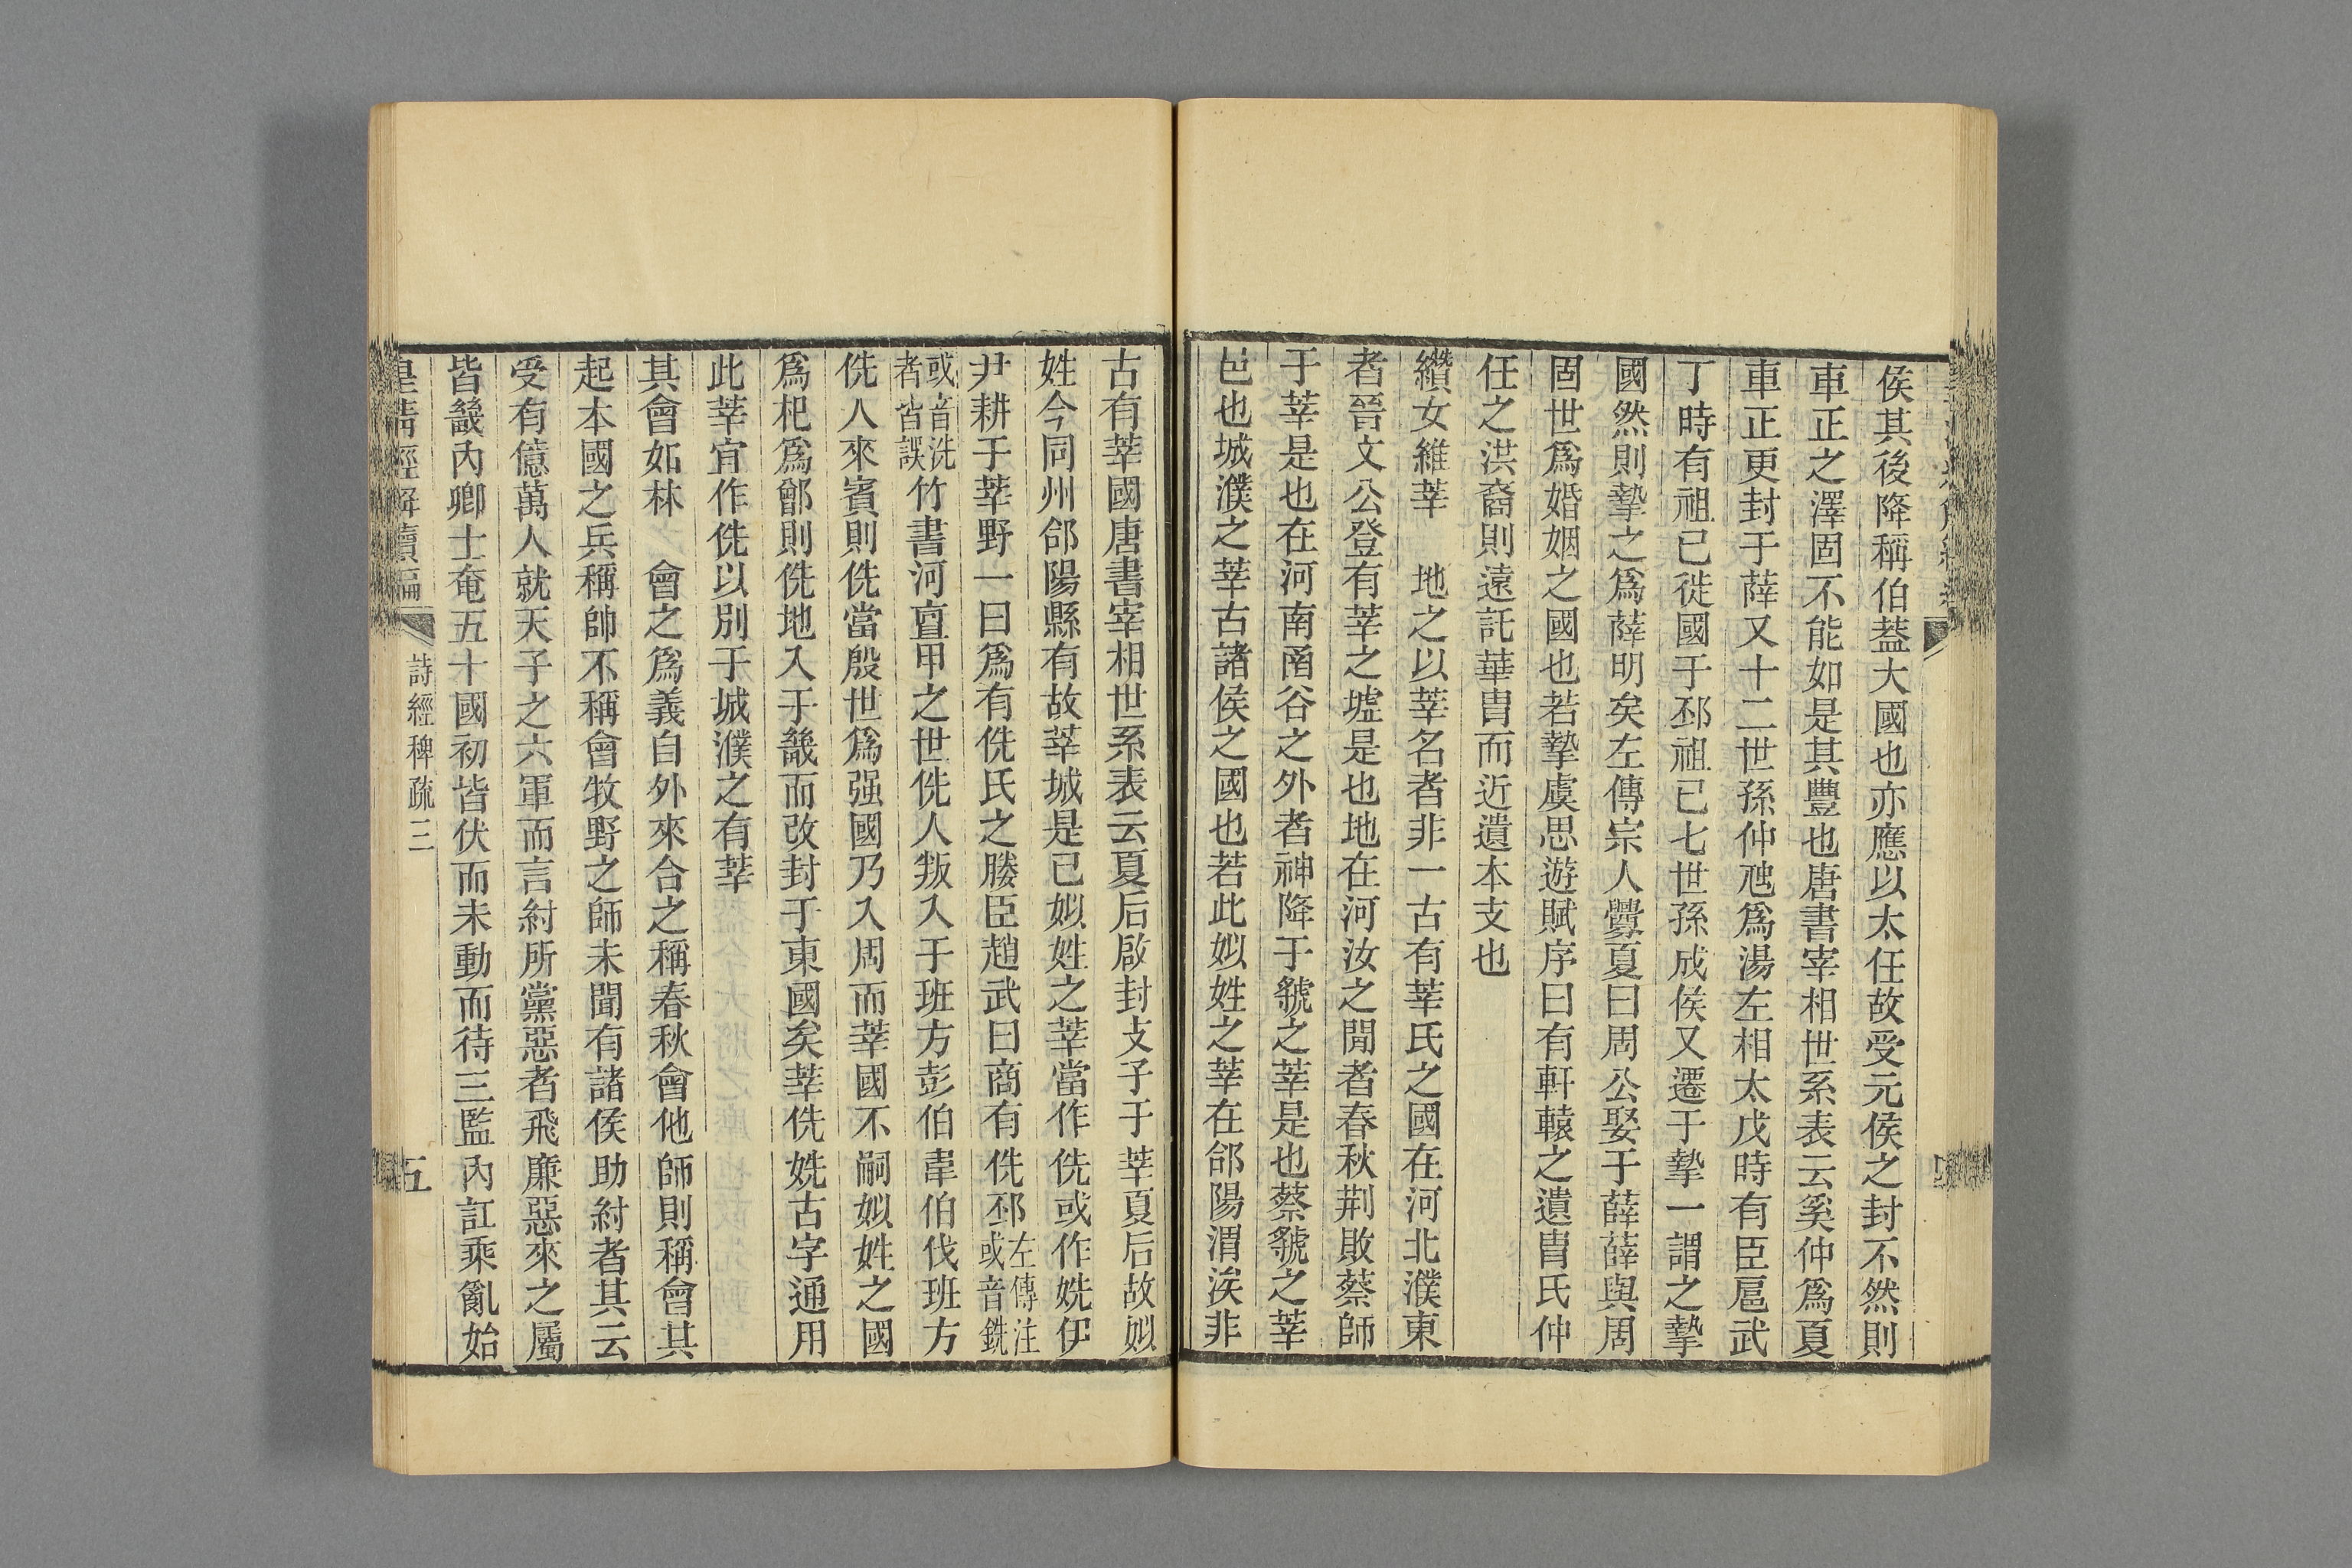 侯其後降稱伯葢大國也亦應以太任故受元侯之封不然則
車正之澤固不能如是其豐也唐書宰相世系表云奚仲爲夏
車正更封于薛又十二世孫仲虺爲湯左相太戊時有臣扈武
丁時有祖已徙國于邳祖已七世孫成侯又遷于摯一謂之摯
國然則摯之爲薛明矣左傳宗人釁夏曰周公娶于薛薛與周
固世爲婚姻之國也若摯虞思遊賦序曰有軒轅之遺胄氏仲
任之洪裔則遠託華胄而近遺本支也
纘女維莘　地之以莘名者非一古有莘氏之國在河北濮東
者晉文公登有莘之墟是也地在河汝之閒者春秋荆敗蔡師
于莘是也在河南函谷之外者神降于虢之莘是也蔡虢之莘
邑也城濮之莘古諸侯之國也若此姒姓之莘在郃陽渭涘非
古有莘國唐書宰相世系表云夏后啟封支子于莘夏后故姒
姓今同州郃陽縣有故莘城是已姒姓之莘當作侁或作姺伊
尹耕于莘野一曰爲有侁氏之媵臣趙武曰商有侁邳左傳注或音銑
或音洗者皆誤竹書河亶甲之世侁人叛入于班方彭伯韋伯伐班方
侁人來賓則侁當殷世爲强國乃入周而莘國不嗣姒姓之國
爲杞爲鄫則侁地入于畿而改封于東國矣莘侁姺古字通用
此莘宜作侁以別于城濮之有莘
其會如林　會之爲義自外來合之稱春秋會他師則稱會其
起本國之兵稱帥不稱會牧野之師未聞有諸侯助紂者其云
受有億萬人就天子之六軍而言紂所黨惡者飛廉惡來之屬
皆畿內卿士奄五十國初皆伏而未動而待三監內訌乘亂始
皇淸經解續編　詩經稗疏三　五